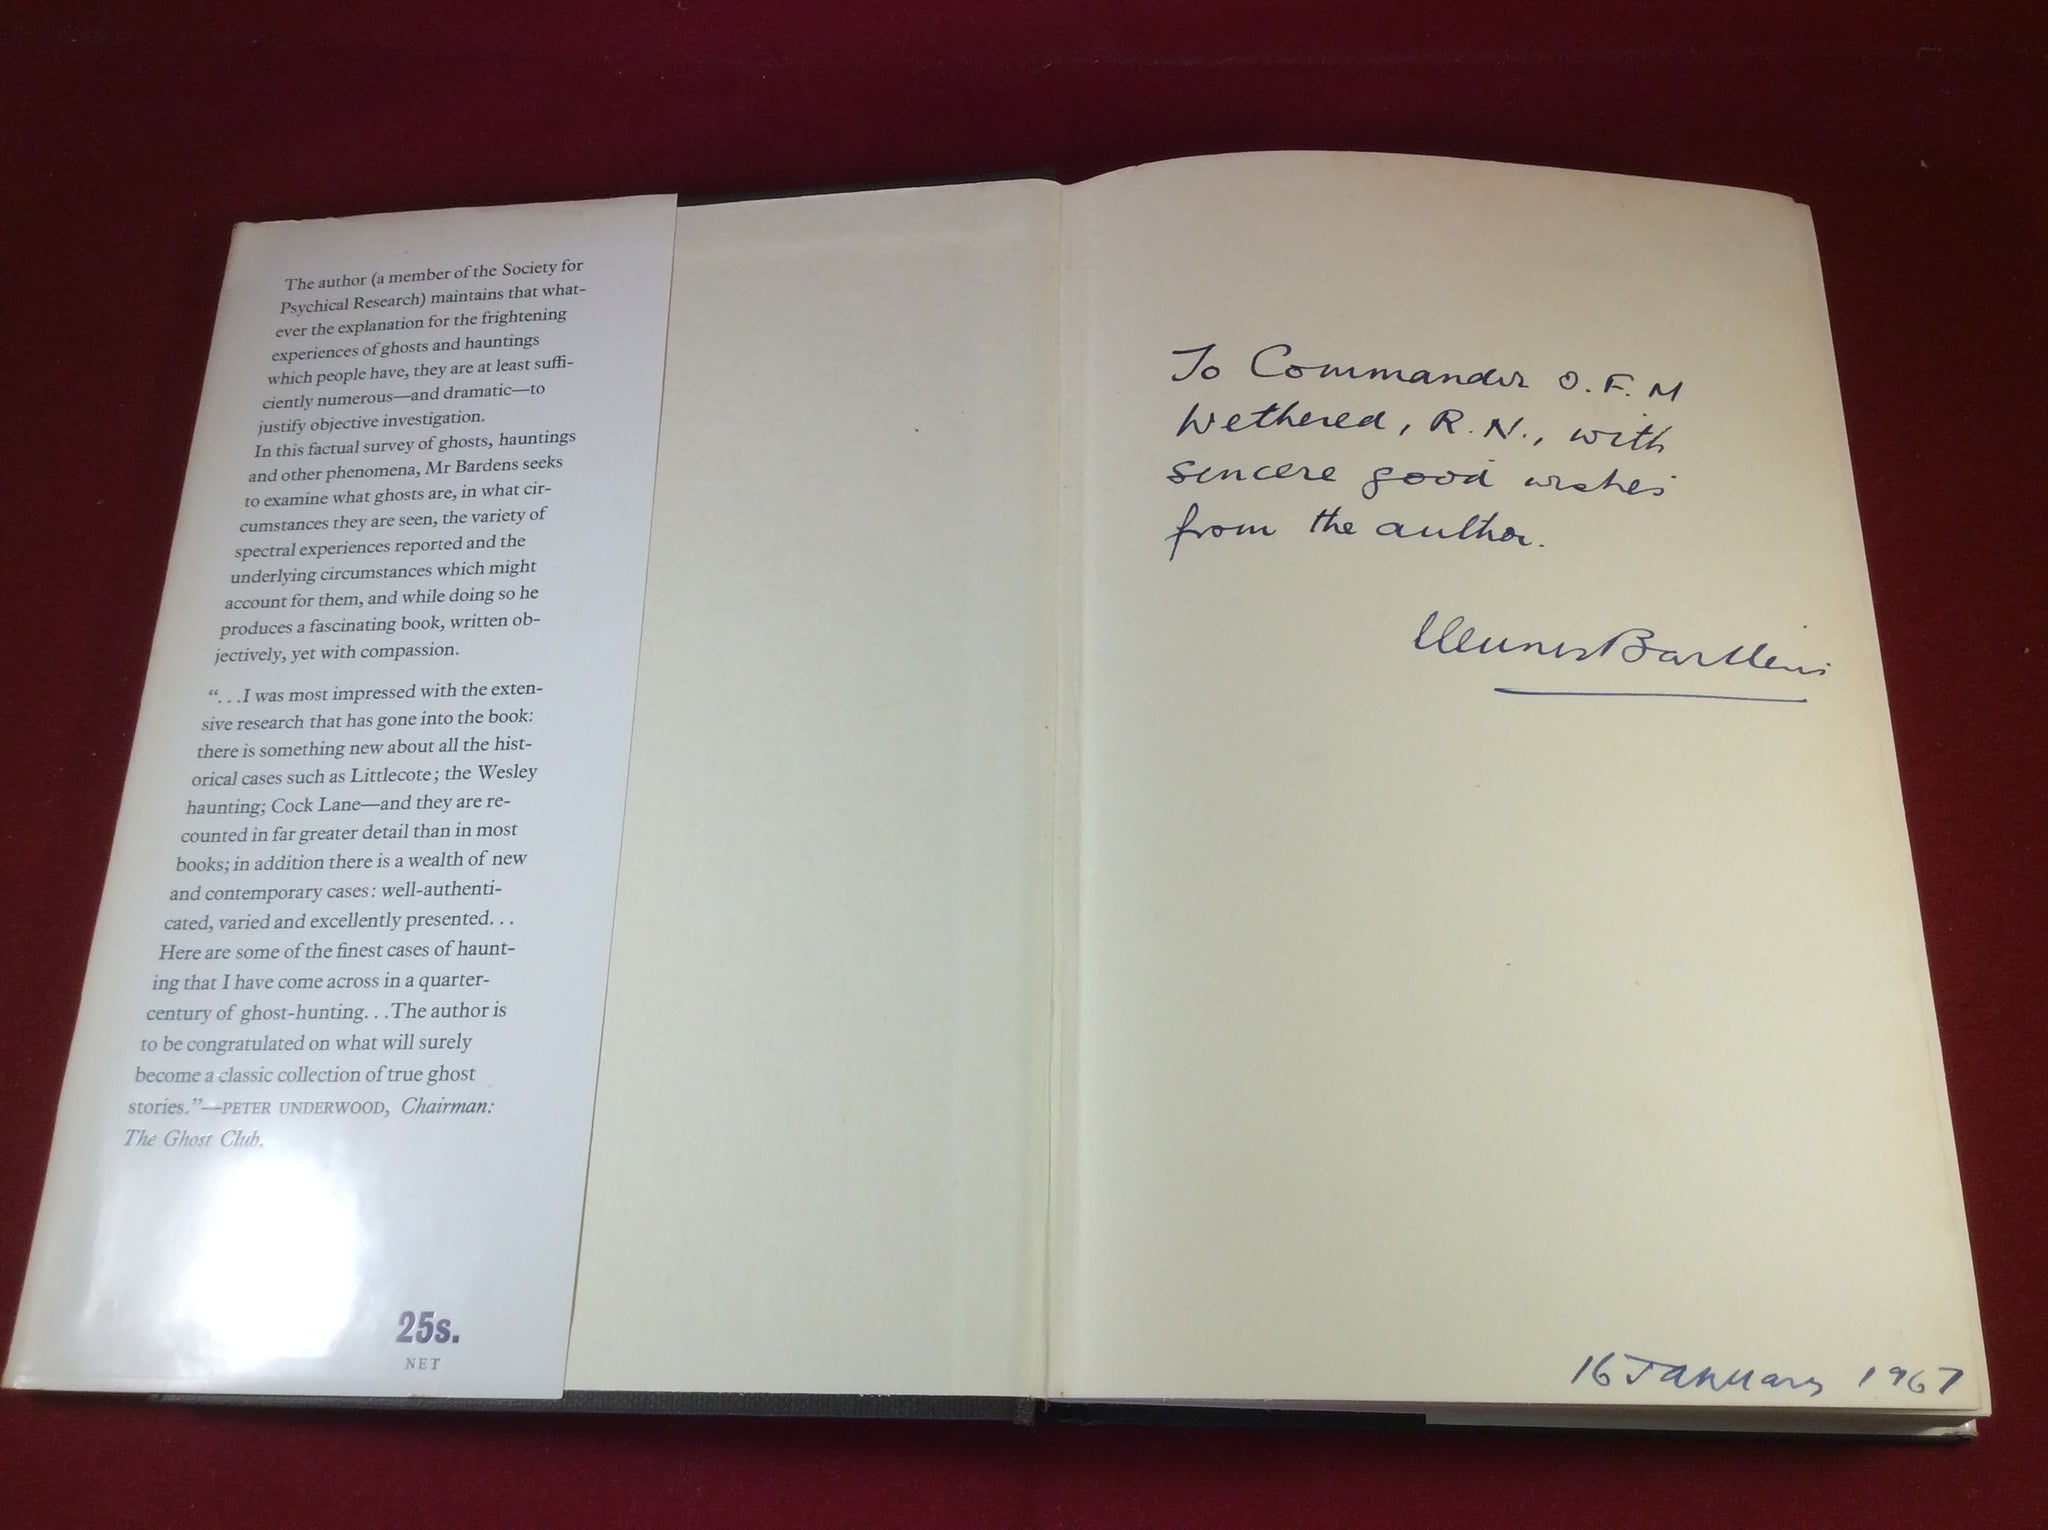 The author (a member of the Society for
Psychical Research) maintains that what-
ever the explanation for the frightening
experiences of ghosts and hauntings
which people have, they are at least suffi-
ciently numerous—and dramatic—to
justify objective investigation.
In this factual survey of ghosts, hauntings
and other phenomena, Mr Bardens seeks
to examine what ghosts are, in what cir-
cumstances they are seen, the variety of
spectral experiences reported and the
underlying circumstances which might
account for them, and while doing so he
produces a fascinating book, written ob-
jectively, yet with compassion.
“...I was most impressed with the exten-
sive research that has gone into the book:
there is something new about all the hist-
orical cases such as Littlecote; the Wesley
haunting; Cock Lane—and they are re-
counted in far greater detail than in most
books; in addition there is a wealth of new
and contemporary cases: well-authenti-
cated, varied and excellently presented...
Here are some of the finest cases of haunt-
ing that I have come across in a quarter-
century of ghost-hunting...The author is
to be congratulated on what will surely
become a classic collection of true ghost
stories.”—PETER UNDERWOOD, Chairman:
The Ghost Club.
25s.
NET
To Commander O.F.M
Wethered, R.N., with
sincere good wishes
from the author.
Dennis Bardens
16 January 1967